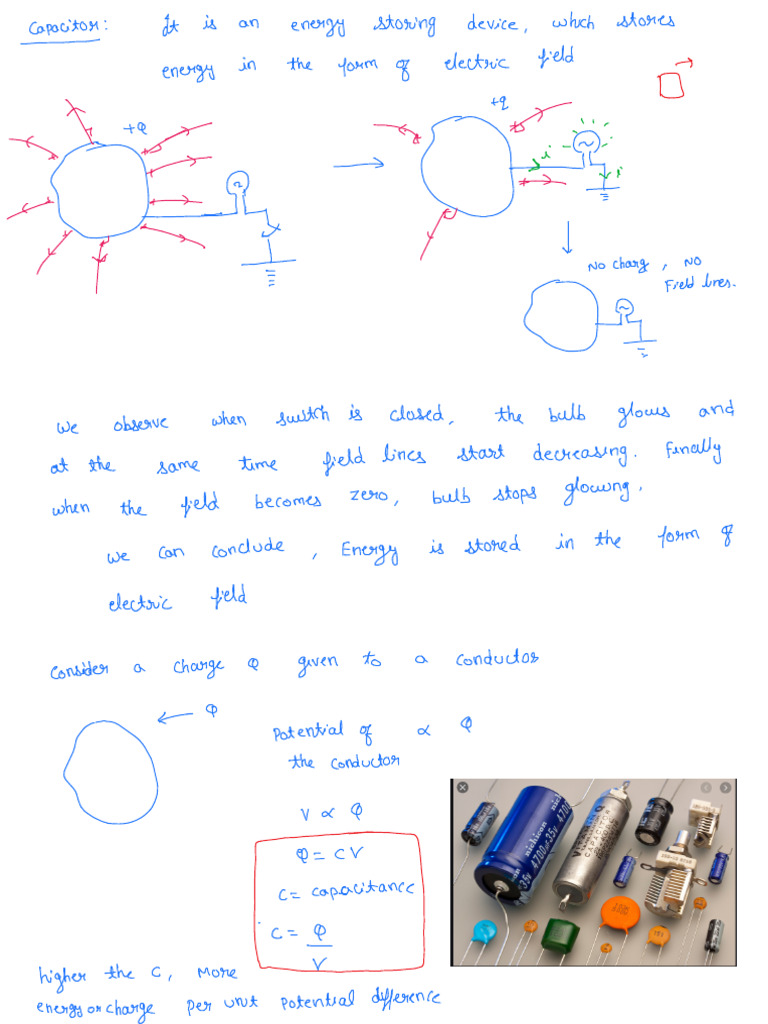 Capacitor: It is an energy storing device, which stores
energy in the form of electric field
+Q
+q
i
i
No charg, No
Field lines.
We observe when switch is closed, the bulb glows and
at the same time field lines start decreasing. Finally
when the field becomes zero, bulb stops glowng.
We can conclude, Energy is stored in the form of
electric field
Consider a charge Q given to a conductor
Q
Potential of ∝ Q
the conductor
V ∝ Q
Q = CV
C = capacitance
C = Q/V
higher the C, More
energy or charge per unit potential difference
nichicon 4700µF 35V
CAPACITOR